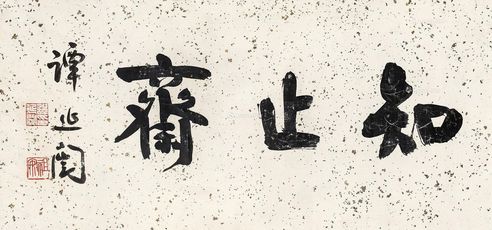 知止齋
譚延闓